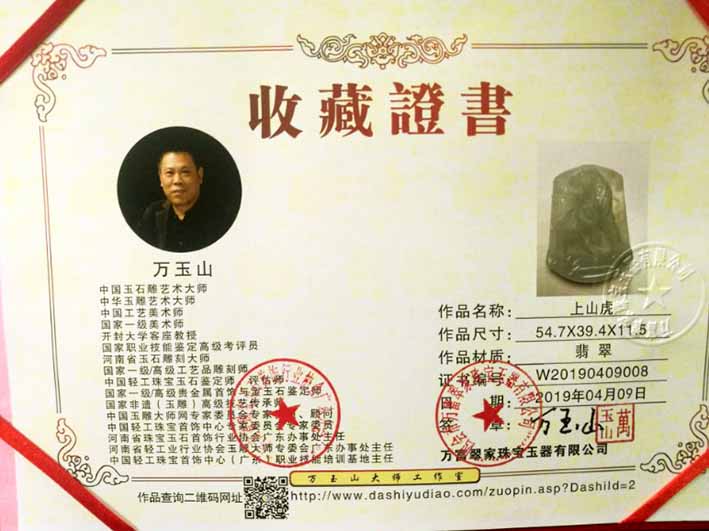 收藏證書
万玉山
中国玉石雕艺术大师
中华玉雕艺术大师
中国工艺美术师
国家一级美术师
开封大学客座教授
国家职业技能鉴定高级考评员
河南省玉石雕刻大师
国家一级/高级工艺品雕刻师
中国轻工珠宝玉石鉴定师 评估师
国家一级/高级贵金属首饰与宝玉石鉴定师
国家非遗(玉雕)高级技艺传承师
中国玉雕大师网专家委员会专家 顾问
中国轻工珠宝首饰中心专家委员会专家委员
河南省珠宝玉石首饰行业协会广东办事处主任
河南省轻工业行业协会玉雕大师专委会广东办事处主任
中国轻工珠宝首饰中心(广东)职业技能培训基地主任
作品名称: 上山虎
作品尺寸: 54.7X39.4X11.5
作品材质: 翡翠
证书编号: W20190409008
日期: 2019年04月09日
签章: 万玉山
萬玉山
万富翠家珠宝玉器有限公司
万玉山大师工作室
作品查询二维码网址
http://www.dashiyudiao.com/zuopin.asp?DashiId=2